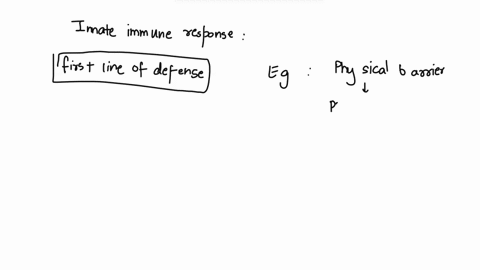 Innate immune response :
first line of defense
Eg : Physical barrier
↓
p